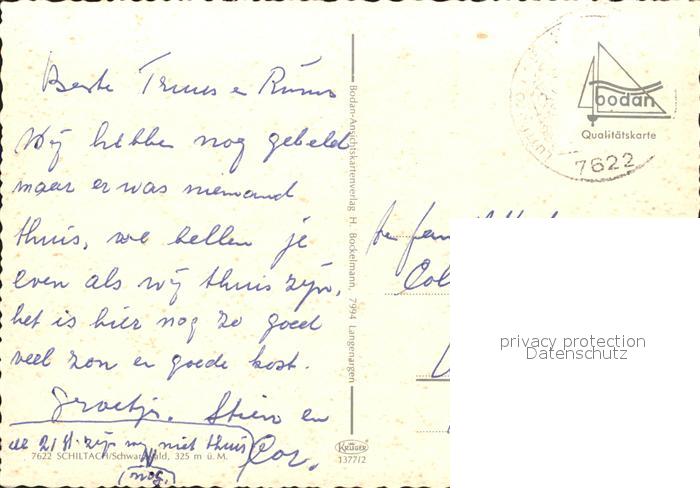 Beste Truus en Rinus
Wij hebben nog gebeld
maar er was niemand
thuis, we bellen je
even als wij thuis zijn,
het is hier nog zo goed
veel zon en goede kost.
Groetjes. Stien en
Cor.
zijn wij niet thuis
(nog)
7622 SCHILTACH/Schwarzwald, 325 m ü. M.
Bodan-Ansichtskartenverlag H. Bockelmann, 7994 Langenargen
KRÜGER
1377/2
bodan
Qualitätskarte
7622
de fam
Col
privacy protection
Datenschutz